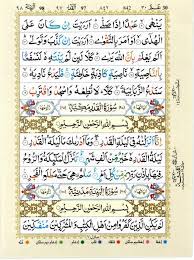 عم ٣٠ 30 842 ٨٤٢ 97 98
يَنْهٰى عَبْدًا اِذَا صَلّٰى اَرَءَيْتَ اِنْ كَانَ عَلَى
الْهُدٰٓى اَوْ اَمَرَ بِالتَّقْوٰى اَرَءَيْتَ اِنْ كَذَّبَ وَتَوَلّٰى
اَلَمْ يَعْلَمْ بِاَنَّ اللّٰهَ يَرٰى كَلَّا لَئِنْ لَّمْ يَنْتَهِ لَنَسْفَعًا
بِالنَّاصِيَةِ نَاصِيَةٍ كَاذِبَةٍ خَاطِئَةٍ فَلْيَدْعُ نَادِيَهٗ
سَنَدْعُ الزَّبَانِيَةَ كَلَّا لَا تُطِعْهُ وَاسْجُدْ وَاقْتَرِبْ
سُوْرَةُ الْقَدْرِ مَكِّيَّةٌ
بِسْمِ اللّٰهِ الرَّحْمٰنِ الرَّحِيْمِ
اِنَّآ اَنْزَلْنٰهُ فِيْ لَيْلَةِ الْقَدْرِ وَمَآ اَدْرٰىكَ مَا لَيْلَةُ
الْقَدْرِ لَيْلَةُ الْقَدْرِ خَيْرٌ مِّنْ اَلْفِ شَهْرٍ تَنَزَّلُ
الْمَلٰٓئِكَةُ وَالرُّوْحُ فِيْهَا بِاِذْنِ رَبِّهِمْ مِنْ كُلِّ اَمْرٍ
سَلٰمٌ هِيَ حَتّٰى مَطْلَعِ الْفَجْرِ
سُوْرَةُ الْبَيِّنَةِ
بِسْمِ اللّٰهِ الرَّحْمٰنِ الرَّحِيْمِ
لَمْ يَكُنِ الَّذِيْنَ كَفَرُوْا مِنْ اَهْلِ الْكِتٰبِ وَالْمُشْرِكِيْنَ مُنْفَكِّيْنَ